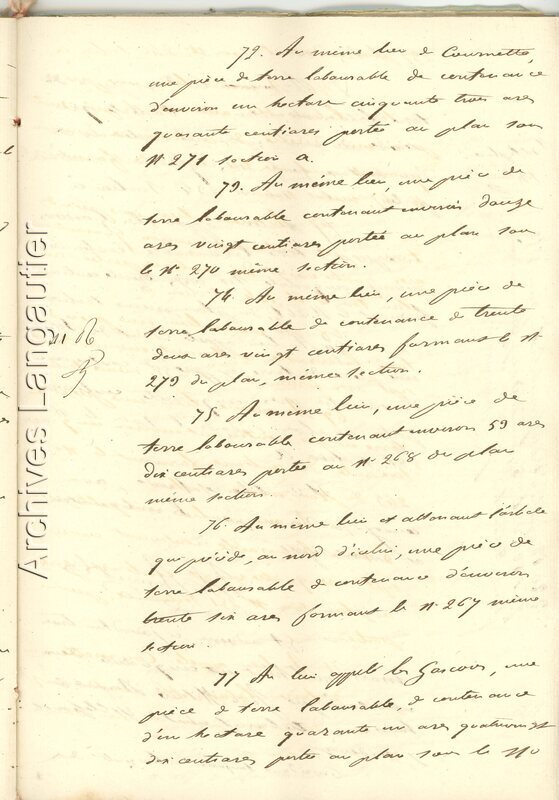 72. Au même lieu de Cournette,
une pièce de terre labourable de contenance
d'environ un hectare cinquante trois ares
quarante centiares portée au plan sous
N° 271 section a.
73. Au même lieu, une pièce de
terre labourable contenant environ douze
ares vingt centiares portée au plan sous
le N° 270 même section.
74. Au même lieu, une pièce de
terre labourable de contenance de trente
deux ares vingt centiares formant le N°
273 du plan, même section.
75 Au même lieu, une pièce de
terre labourable contenant environ 59 ares
dix centiares portée au N° 268 du plan
même section.
76. Au même lieu et attenant l'article
qui précède, au nord d'icelui, une pièce de
terre labourable de contenance d'environ
trente six ares formant le N° 267 même
section.
77 Au lieu appelé les Gascous, une
pièce de terre labourable, de contenance
d'un hectare quarante un ares quatrevingt
dix centiares portée au plan sous le No
Archives Langautier